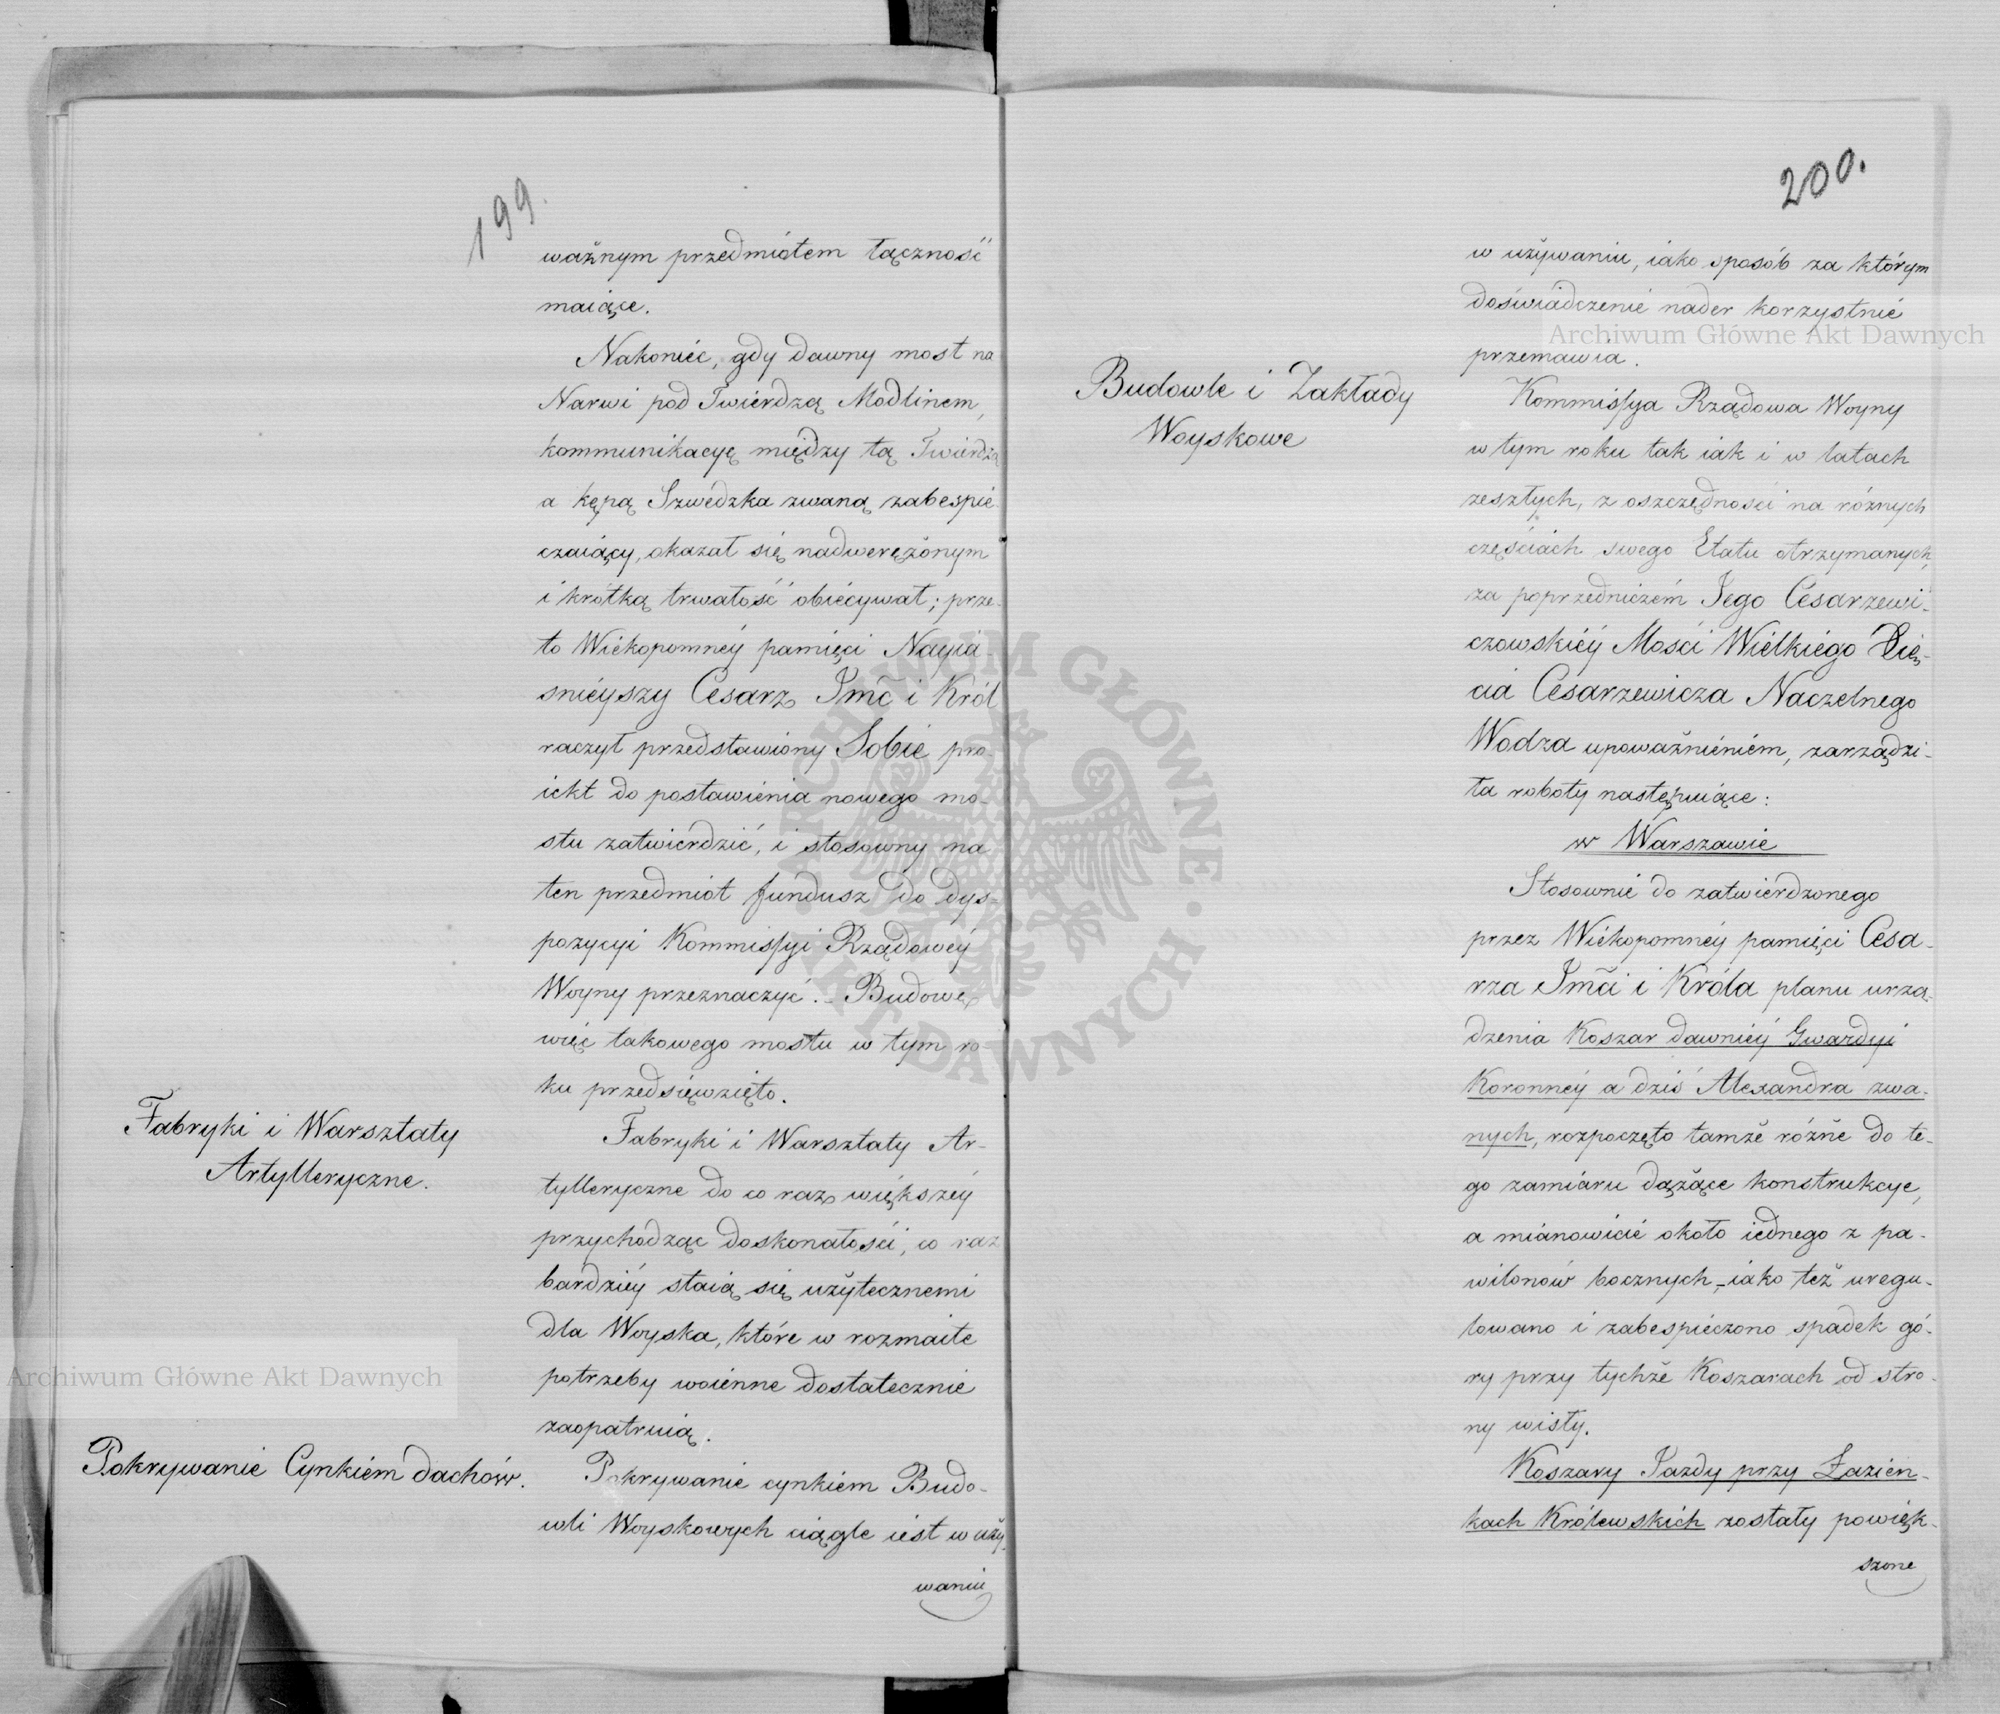 199.
ważnym przedmiotem łączność
maiące.
Nakoniéc, gdy dawny most na
Narwi pod Twiérdzą Modlinem,
kommunikacyę między tą Twiérdzą
a kępą Szwédzka zwaną zabespié-
czaiący, okazał się nadwerężonym
i krótką trwałość obiécywał; prze-
to Wiékopomnéy pamięci Nayia-
śniéyszy Césarz Jmć i Król
raczył przedstawiony Sobie pro
iekt do postawiénia nowego mo-
stu zatwiérdzić, i stosowny na
ten przedmiot fundusz do dys-
pozycyi Kommissyi Rządowéy
Woyny przeznaczyć. – Budowę
więc takowego mostu w tym ro-
ku przedsięwzięto.
Fabryki i Warsztaty
Artylleryczne.
Fabryki i Warsztaty Ar-
tylleryczne do co raz większéy
przychodząc doskonałości, co raz
bardziéy staią się użytecznemi
dla Woyska, które w rozmaite
potrzeby woiénne dostatecznie
zaopatruią.
Pokrywanie Cynkiém dachów.
Pokrywanie cynkiém Budo-
wli Woyskowych ciągle iest w uży-
waniu
200.
w używaniu, iako sposób za którym
doświadczenié nader korzystnié
przemawia.
Budowle i Zakłady
Woyskowe
Kommissya Rządowa Woyny
w tym roku tak iak i w latach
zeszłych, z oszczędności na różnych
częściach swego Etatu otrzymanych,
za poprzedniczém Jego Césarzewi-
czowskiéy Mości Wiélkiégo Xię-
cia Césarzewicza Naczelnego
Wodza upoważniéniém, zarządzi-
ła roboty następuiące:
w Warszawie
Stosownié do zatwiérdzonego
przez Wiékopomnéy pamięci Césa-
rza Jmći i Króla planu urzą-
dzenia Koszar dawniéy Gwardyi
Koronnéy a dziś Alexandra zwa-
nych, rozpoczęto tamże różne do te-
go zamiaru dążące konstrukcye,
a mianowicié około iednego z pa-
wilonów bocznych, – iako też uregu-
lowano i zabespiéczono spadek gó-
ry przy tychże Koszarach od stro-
ny wisły.
Koszary Jazdy przy Łazién-
kach Królewskich zostały powięk-
szone
Archiwum Główne Akt Dawnych
Archiwum Główne Akt Dawnych
ARCHIWUM GŁÓWNE · AKT DAWNYCH ·